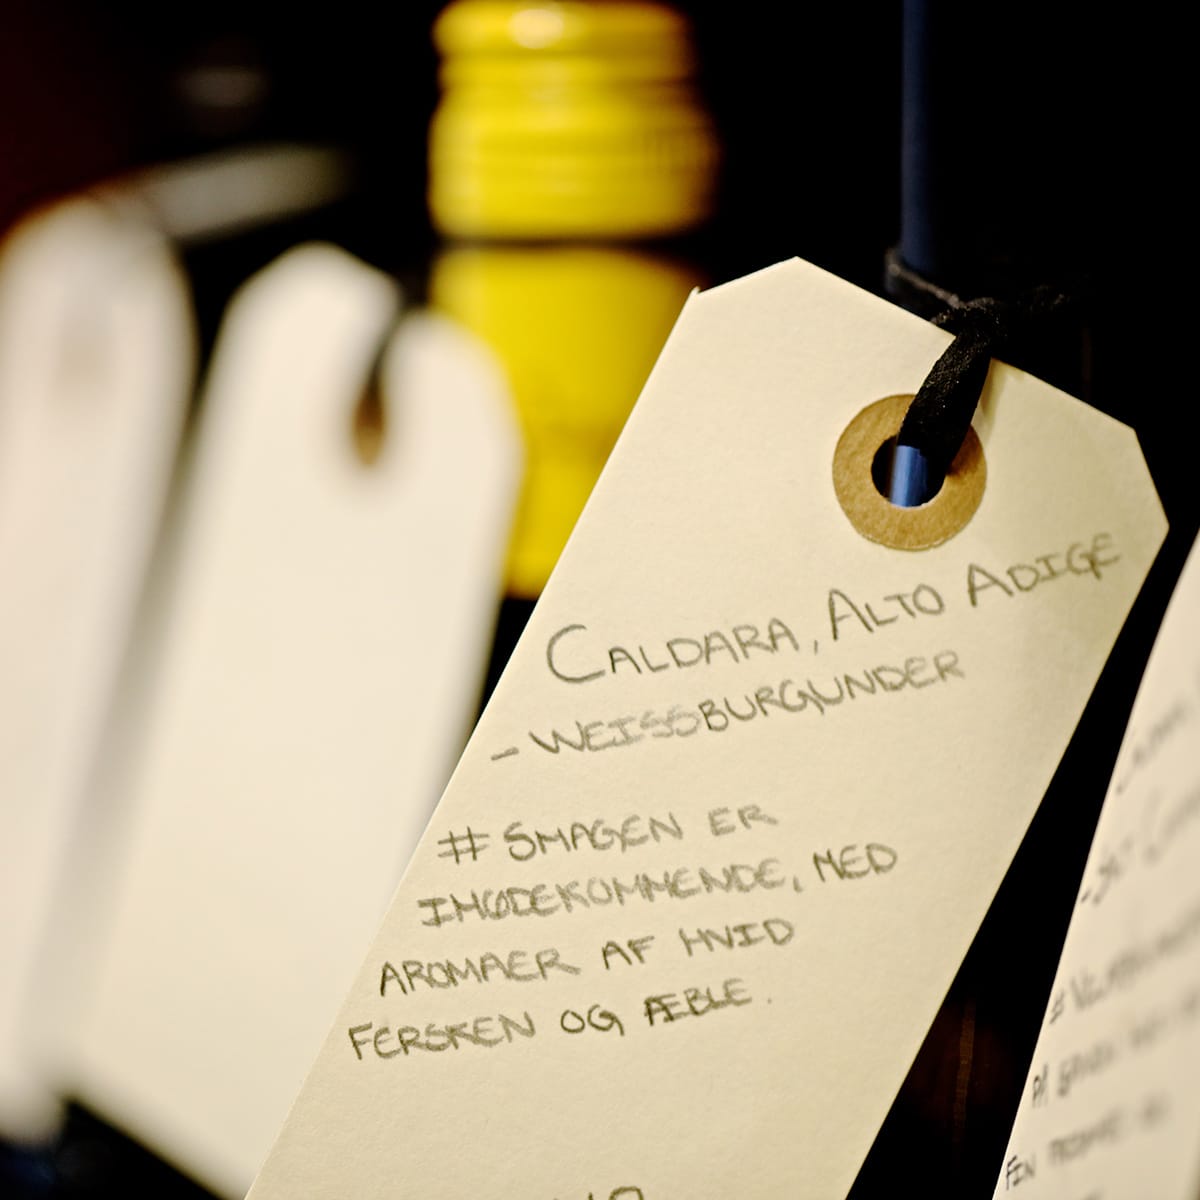 CALDARA, ALTO ADIGE
- WEISSBURGUNDER
# SMAGEN ER
IMØDEKOMMENDE, MED
AROMAER AF HVID
FERSKEN OG ÆBLE.
FIN